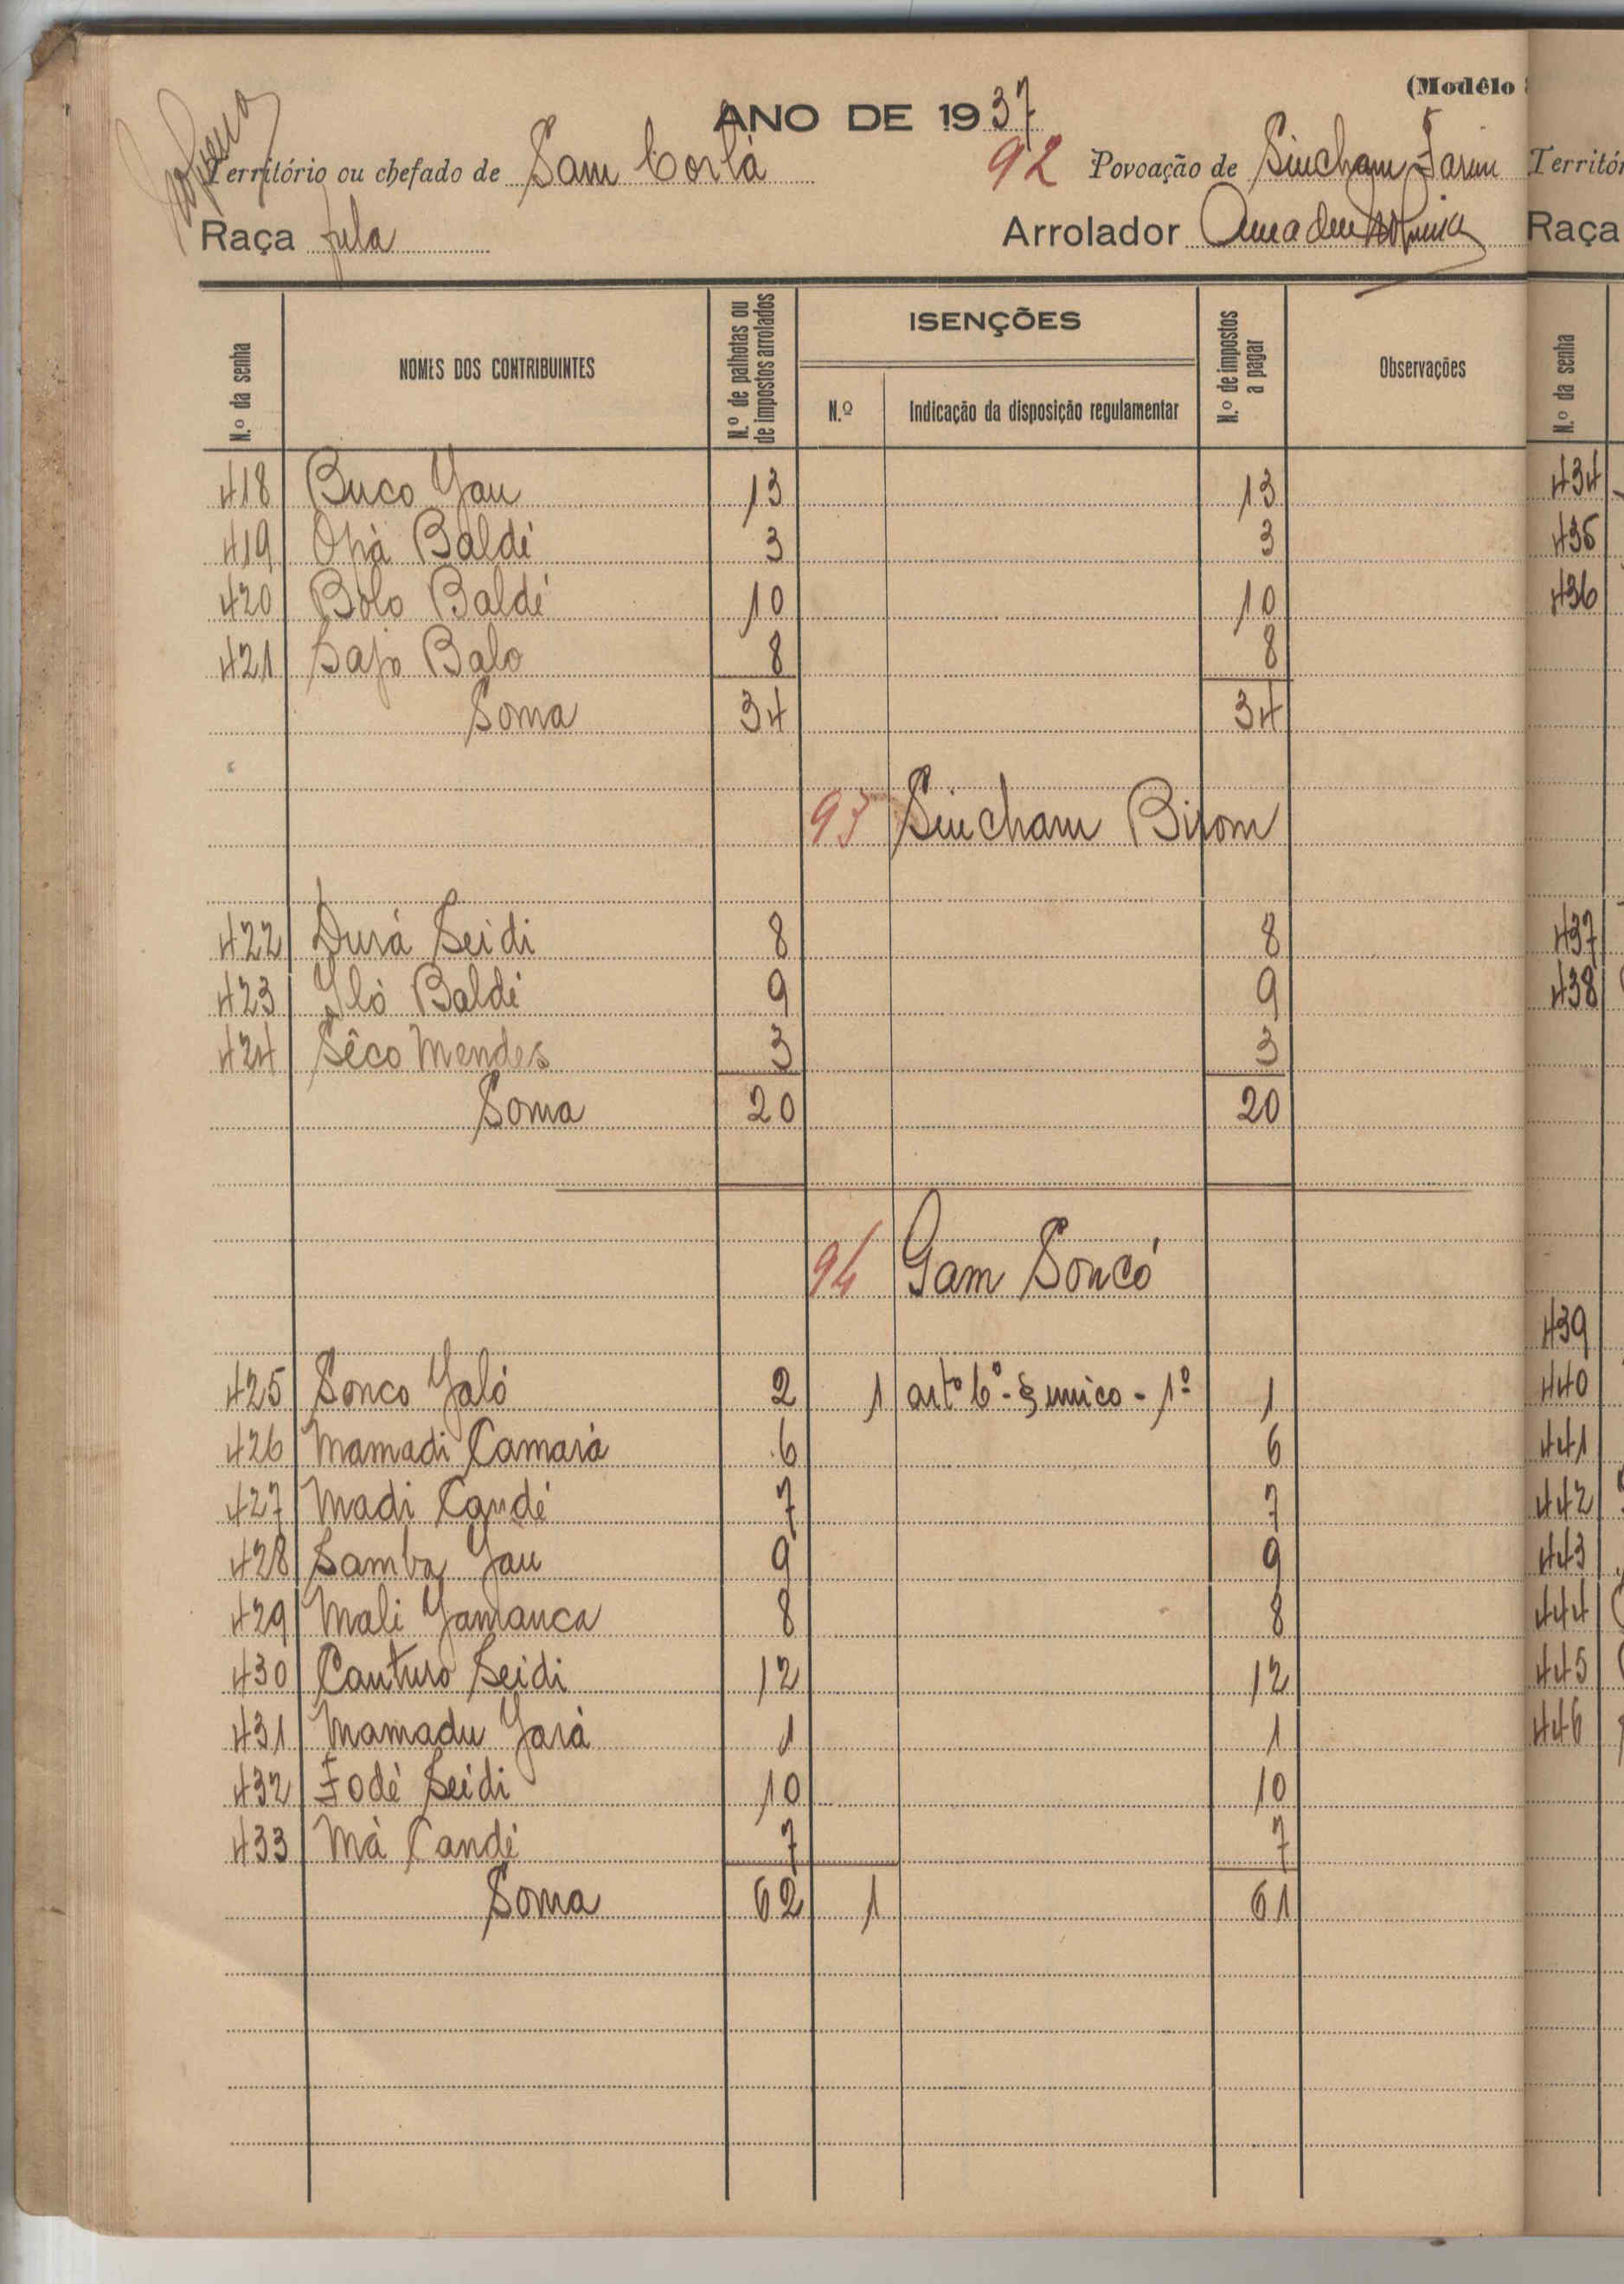 (Modêlo
ANO DE 1937
Território ou chefado de Sam Corlà 92 Povoação de Sincham Farim
Raça fula Arrolador Amadeu
N.º da senha NOMES DOS CONTRIBUINTES N.º de palhotas ou de impostos arrolados ISENÇÕES N.º Indicação da disposição regulamentar N.º de impostos a pagar Observações
418 Buco Jau 13 13
419 Opà Baldé 3 3
420 Bolo Baldé 10 10
421 Sajo Balo 8 8
Soma 34 34
93 Sincham Birom
422 Durá Seidi 8 8
423 Iló Baldé 9 9
424 Sêco Mendes 3 3
Soma 20 20
94 Gam Soncó
425 Sonco Jaló 2 1 artº 6º - § unico - 1º 1
426 Mamadi Camará 6 6
427 Madi Candé 7 7
428 Samba Jau 9 9
429 Mali Jamanca 8 8
430 Canturo Seidi 12 12
431 Mamadu Jará 1 1
432 Fodé Seidi 10 10
433 Má Candé 7 7
Soma 62 1 61
Territó
Raça
N.º da senha
434
435
436
437
438
439
440
441
442
443
444
445
446